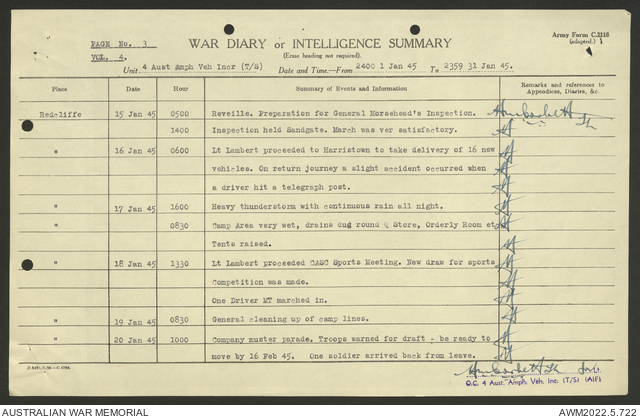 PAGE No. 3
VOL. 4.
WAR DIARY or INTELLIGENCE SUMMARY
(Erase heading not required).
Army Form C.2118
(adapted.)
Unit. 4 Aust Amph Veh Incr (T/S) Date and Time.—From 2400 1 Jan 45 To 2359 31 Jan 45.
Place Date Hour Summary of Events and Information Remarks and references to Appendices, Diaries, &c.
Redcliffe 15 Jan 45 0500 Reveille. Preparation for General Morsehead's Inspection.
1400 Inspection held Sandgate. March was ver satisfactory.
" 16 Jan 45 0600 Lt Lambert proceeded to Harristown to take delivery of 16 new
vehicles. On return journey a slight accident occurred when
a driver hit a telegraph post.
" 17 Jan 45 1600 Heavy thunderstorm with continuous rain all night.
" 0830 Camp Area very wet, drains dug round Q Store, Orderly Room etc
Tents raised.
" 18 Jan 45 1330 Lt Lambert proceeded CASC Sports Meeting. New draw for sports
Competition was made.
One Driver MT marched in.
" 19 Jan 45 0830 General cleaning up of camp lines.
" 20 Jan 45 1000 Company muster parade. Troops warned for draft - be ready to
move by 16 Feb 45. One soldier arrived back from leave.
O.C. 4 Aust. Amph. Veh. Inc. (T/S) (AIF)
AUSTRALIAN WAR MEMORIAL
AWM2022.5.722